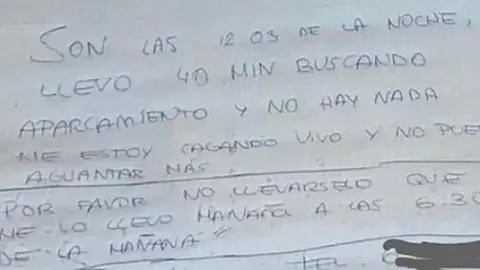 SON LAS 12 03 DE LA NOCHE,
LLEVO 40 MIN BUSCANDO
APARCAMIENTO Y NO HAY NADA
ME ESTOY CAGANDO VIVO Y NO PUE
AGUANTAR MÁS.
POR FAVOR NO LLEVARSELO QUE
ME LO LLEVO MAÑANA A LAS 6.30
DE LA MAÑANA
TEL.